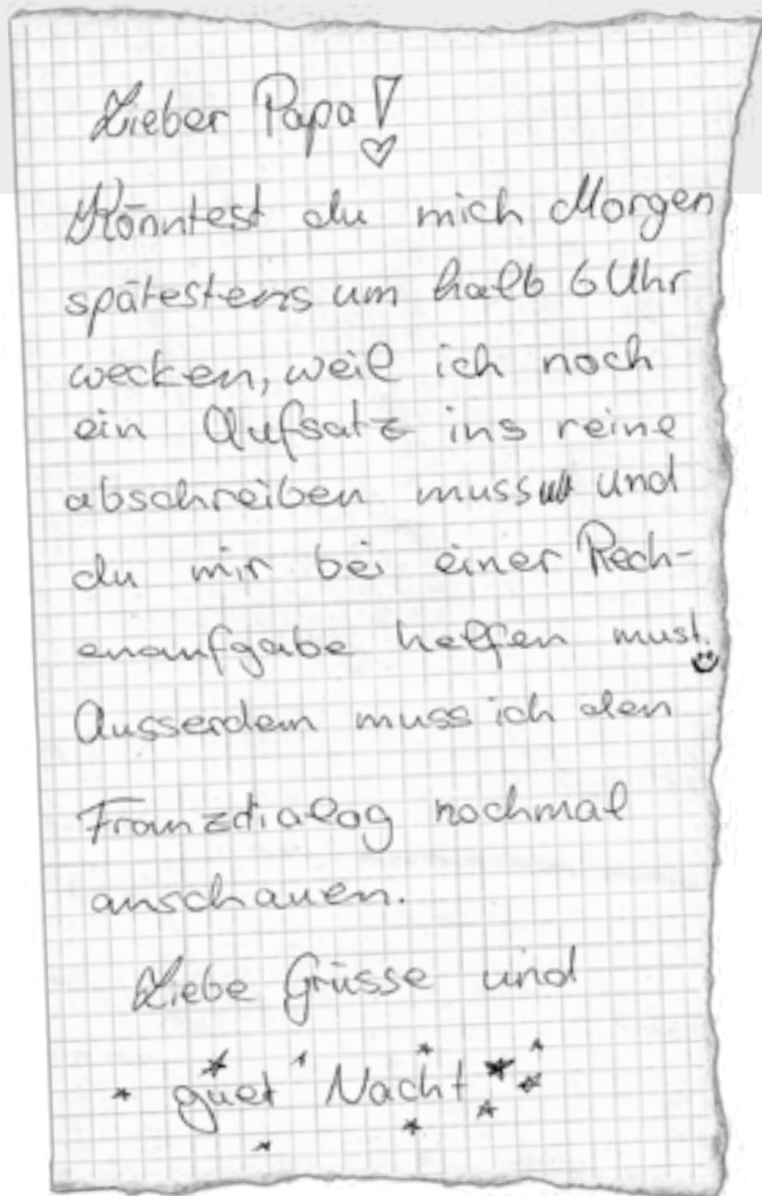 Lieber Papa!
Könntest du mich Morgen
spätestens um halb 6 Uhr
wecken, weil ich noch
ein Aufsatz ins reine
abschreiben muss und
du mir bei einer Rech-
enaufgabe helfen must.
Ausserdem muss ich den
Franzdialog nochmal
anschauen.
Liebe Grüsse und
guet Nacht